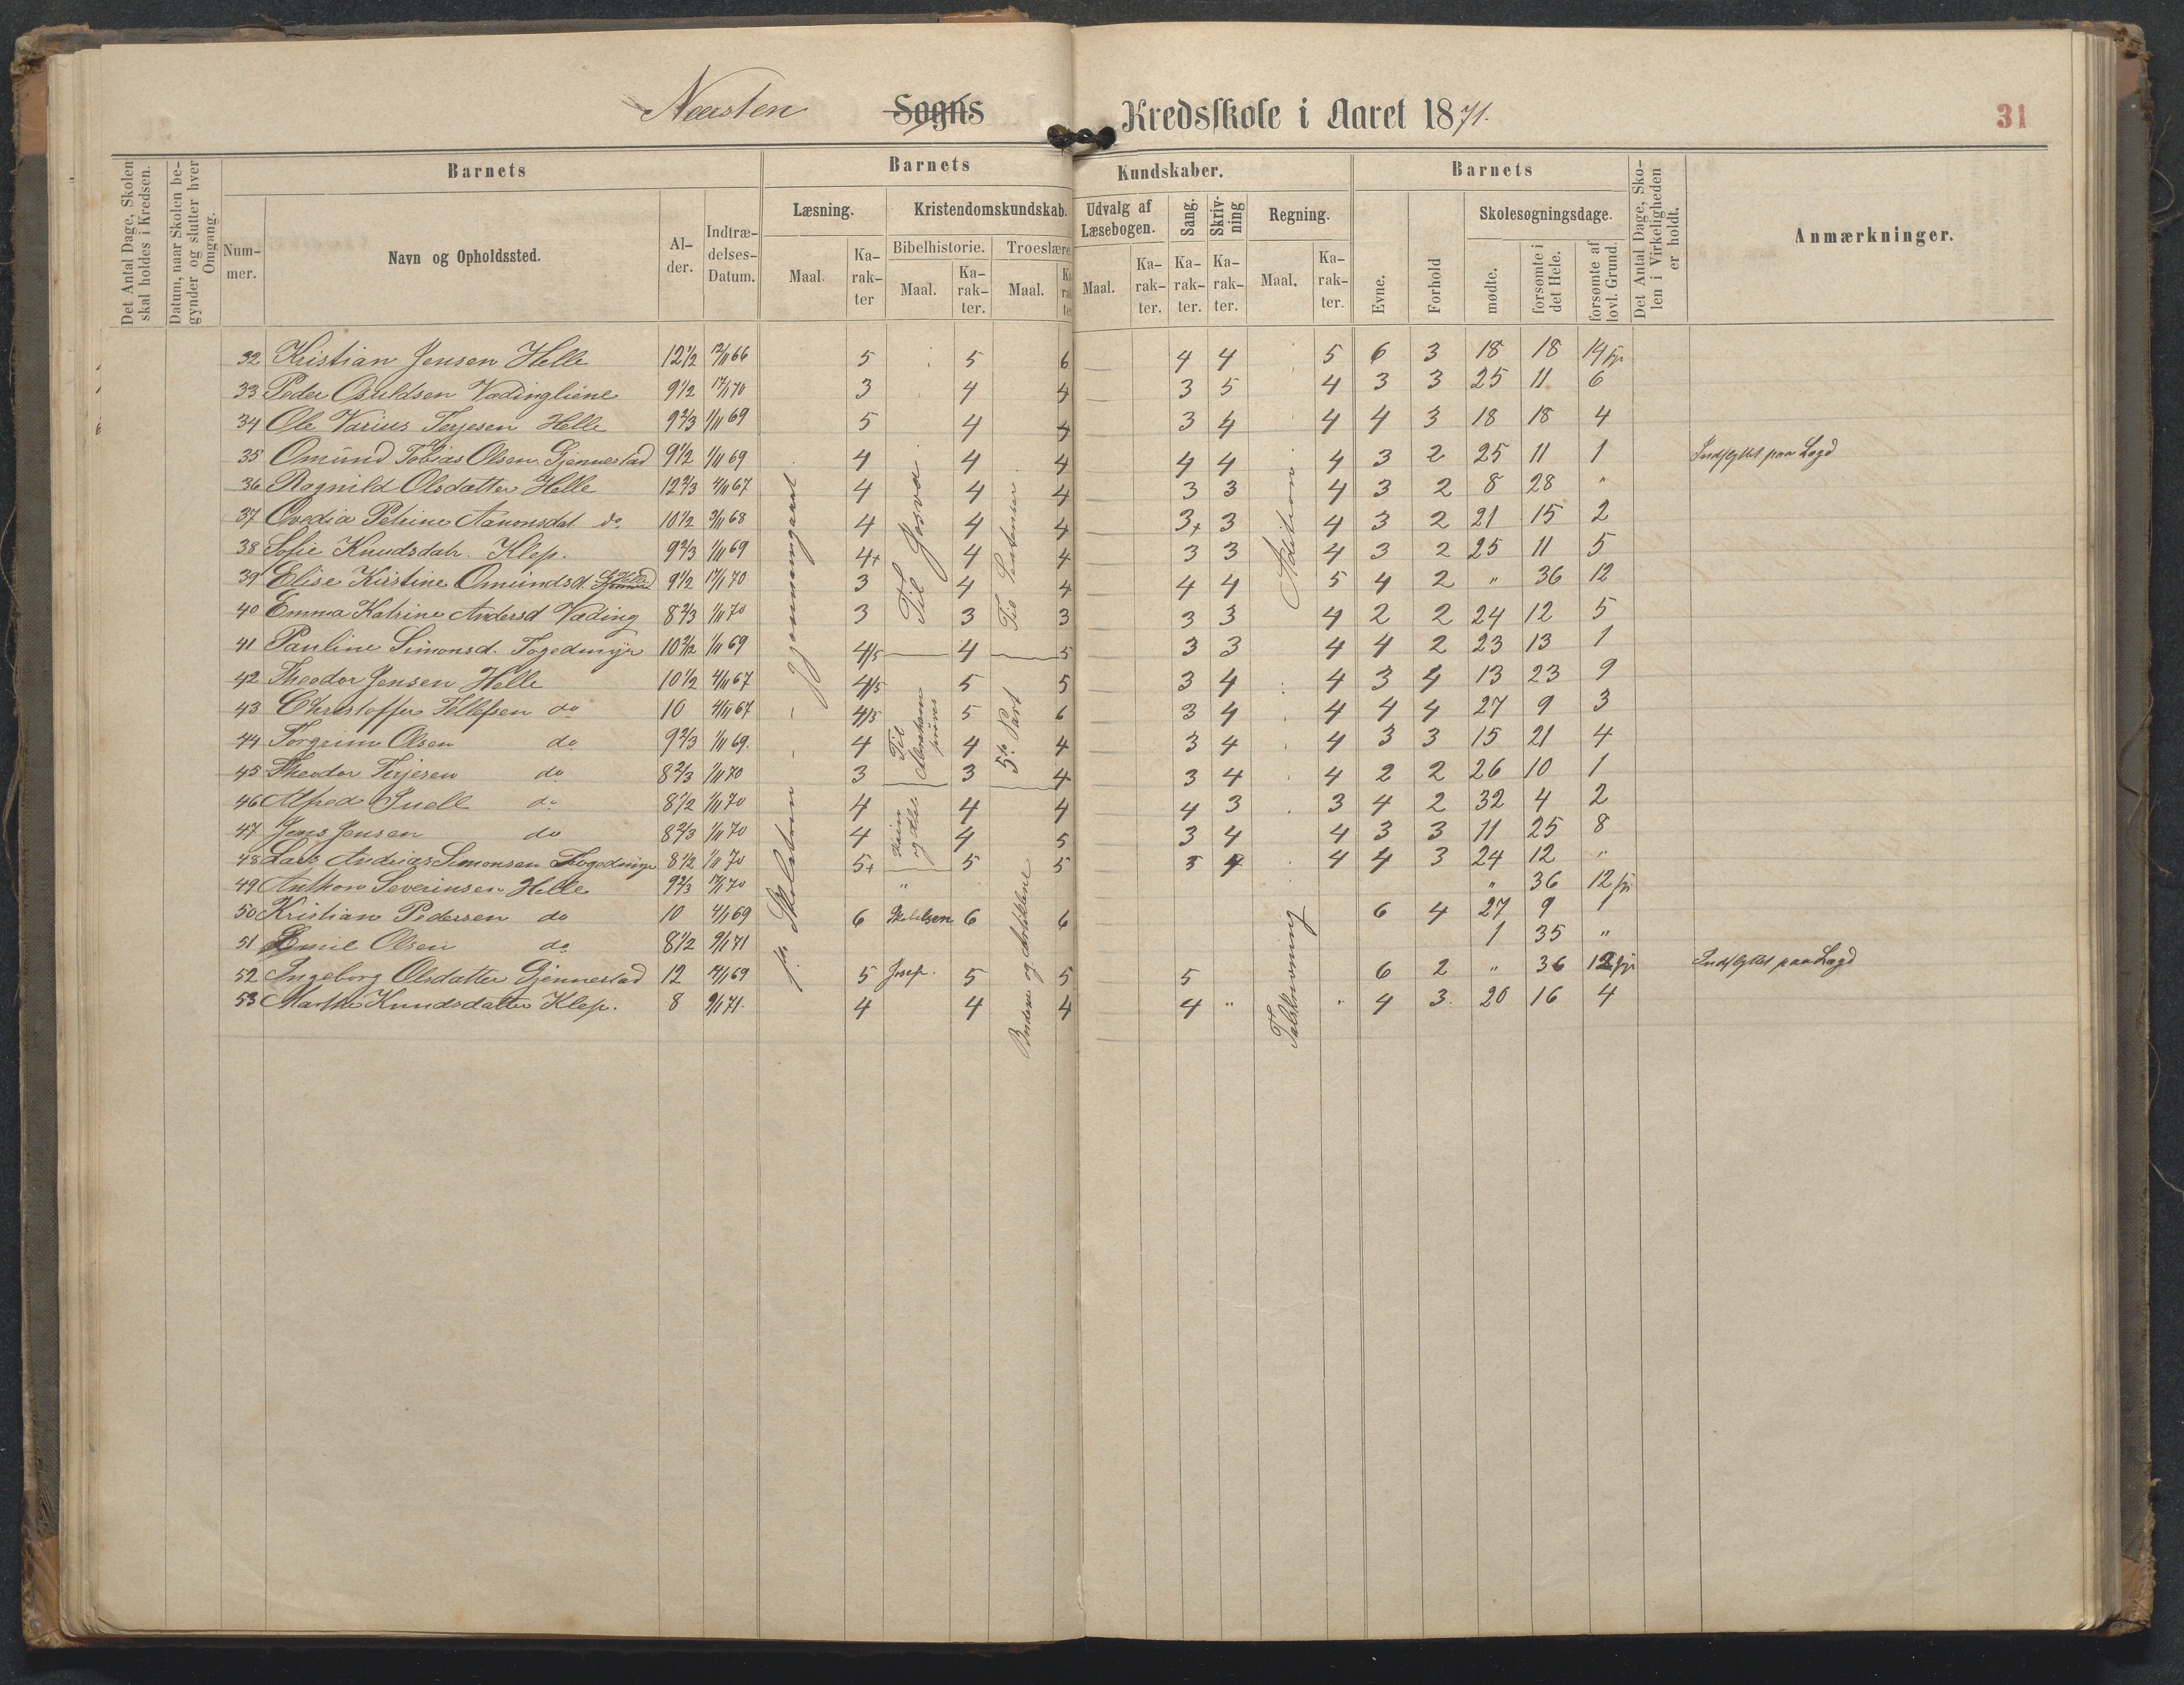 Næsten Sogns Kredsskole i Aaret 1871. 31
Det Antal Dage, Skolen skal holdes i Kredsen.
Datum, naar Skolen begynder og slutter hver Omgang.
Barnets Barnets Kundskaber. Barnets
Det Antal Dage, Skolen i Virkeligheden er holdt.
Anmærkninger.
Nummer. Navn og Opholdssted. Alder. Indtrædelses-Datum.
Læsning. Kristendomskundskab. Udvalg af Læsebogen. Sang. Skrivning Regning. Skolesøgningsdage.
Bibelhistorie. Troeslære.
Maal. Karakter Maal. Karakter. Maal. Karakter Maal. Karakter. Karakter. Karakter. Maal. Karakter. Evne. Forhold mødte. forsømte i det Hele. forsømte af lovl. Grund.
32 Kristian Jensen Helle 12 1/2 12/11 66 5 5 6 4 4 5 6 3 18 18 14
33 Peder Osuldsen Vædingliene 9 1/2 17/1 70 3 4 4 3 5 4 3 3 25 11 6
34 Ole Varius Terjesen Helle 9 2/3 1/11 69 5 4 4 3 4 4 4 3 18 18 4
35 Omund Tobias Olsen Gjennestad 9 1/2 1/11 69 4 4 4 4 4 4 3 2 25 11 1 Indflyttet paa Lægd
36 Ragnild Olsdatter Helle 12 2/3 4/11 67 4 4 4 3 3 4 3 2 8 28 "
37 Ovedia Petrine Aanonsdat do 10 1/2 3/11 68 4 4 4 3+ 3 4 3 2 21 15 2
38 Sofie Knudsdatr. Klep. 9 2/3 1/11 69 4+ 4 4 3 3 4 3 2 25 11 5
39 Elise Kirstine Omundsd. Helle 9 1/2 17/1 70 3 4 4 4 4 5 4 2 " 36 12
40 Emma Katrine Andersd Væding 8 2/3 1/11 70 3 3 3 3 3 4 2 2 24 12 5
41 Pauline Simonsd. Fogedmyr 10 2/12 1/11 69 4/5 4 5 3 3 4 4 2 23 13 1
42 Theodor Jensen Helle 10 1/2 4/11 67 4/5 5 5 3 4 4 3 4 13 23 9
43 Christoffer Tellefsen do 10 4/11 67 4/5 5 6 3 4 4 4 4 27 9 3
44 Torgrim Olsen do 9 2/3 1/11 69. 4 4 4 3 4 4 3 3 15 21 4
45 Theodor Terjesen do 8 2/3 1/11 70 3 3 4 3 4 4 2 2 26 10 1
46 Alfred Snell do 8 1/2 1/11 70 4 4 4 4 3 3 4 2 32 4 2
47 Jens Jensen do 8 2/3 1/11 70 4 4 5 3 4 4 3 3 11 25 8
48 Lars Andreas Simonsen Fogedmyr 8 1/2 1/11 70 5+ 5 5 3 4 4 4 3 24 12 "
49 Anthon Severinsen Helle 9 2/3 17/1 70 " " 36 12
50 Kristian Pedersen do 10 4/1 69 6 Skabelsen 6 6 6 4 27 9 1
51 Emil Olsen do 8 1/2 9/1 71 1 35 "
52 Ingeborg Olsdatter Gjennestad 12 4/1 69 5 Josef. 5 5 5 6 2 " 36 12 Indflyttet paa Lægd
53 Marthe Knudsdatter Klep. 8 9/1 71. 4 4 4 4 " " 4 3. 20 16 4
Skoletrin gjennemgaaet
Til Josva
Til Abrahams prøves
Kain og Abel
Til
5te Part
og Artiklene
Addition
Talskrivning